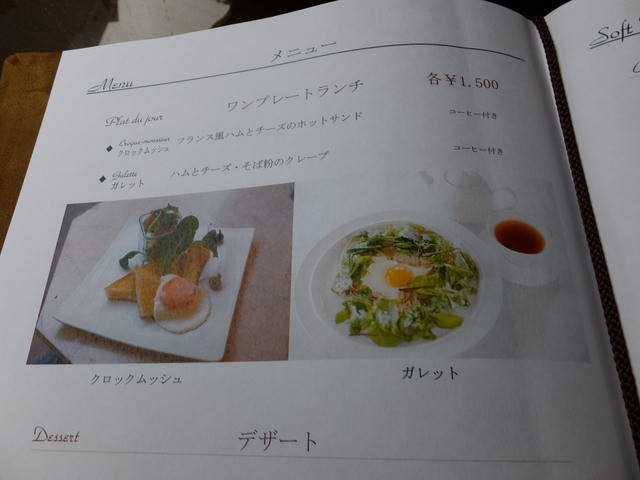 メニュー
Menu
Soft
Plat du jour ワンプレートランチ 各￥1.500
◆ Croque-monsieur
クロックムッシュ フランス風ハムとチーズのホットサンド コーヒー付き
◆ Galette
ガレット ハムとチーズ・そば粉のクレープ コーヒー付き
クロックムッシュ ガレット
Dessert デザート